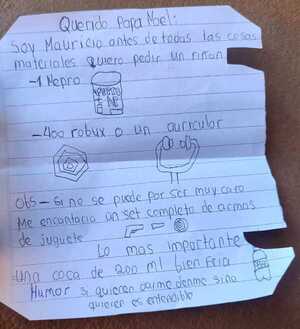 Querido Papa Noel:
Soy Mauricio antes de todas las cosas
materiales quiero pedir un riñon
-1 Nepro
-400 robux o un auricular
Obs - si no se puede por ser muy caro
Me encantaria un set completo de armas
de juguete
Lo mas importante
-una coca de 200 ml bien fria
Humor si quieren darme denme sino
quieren es entendible